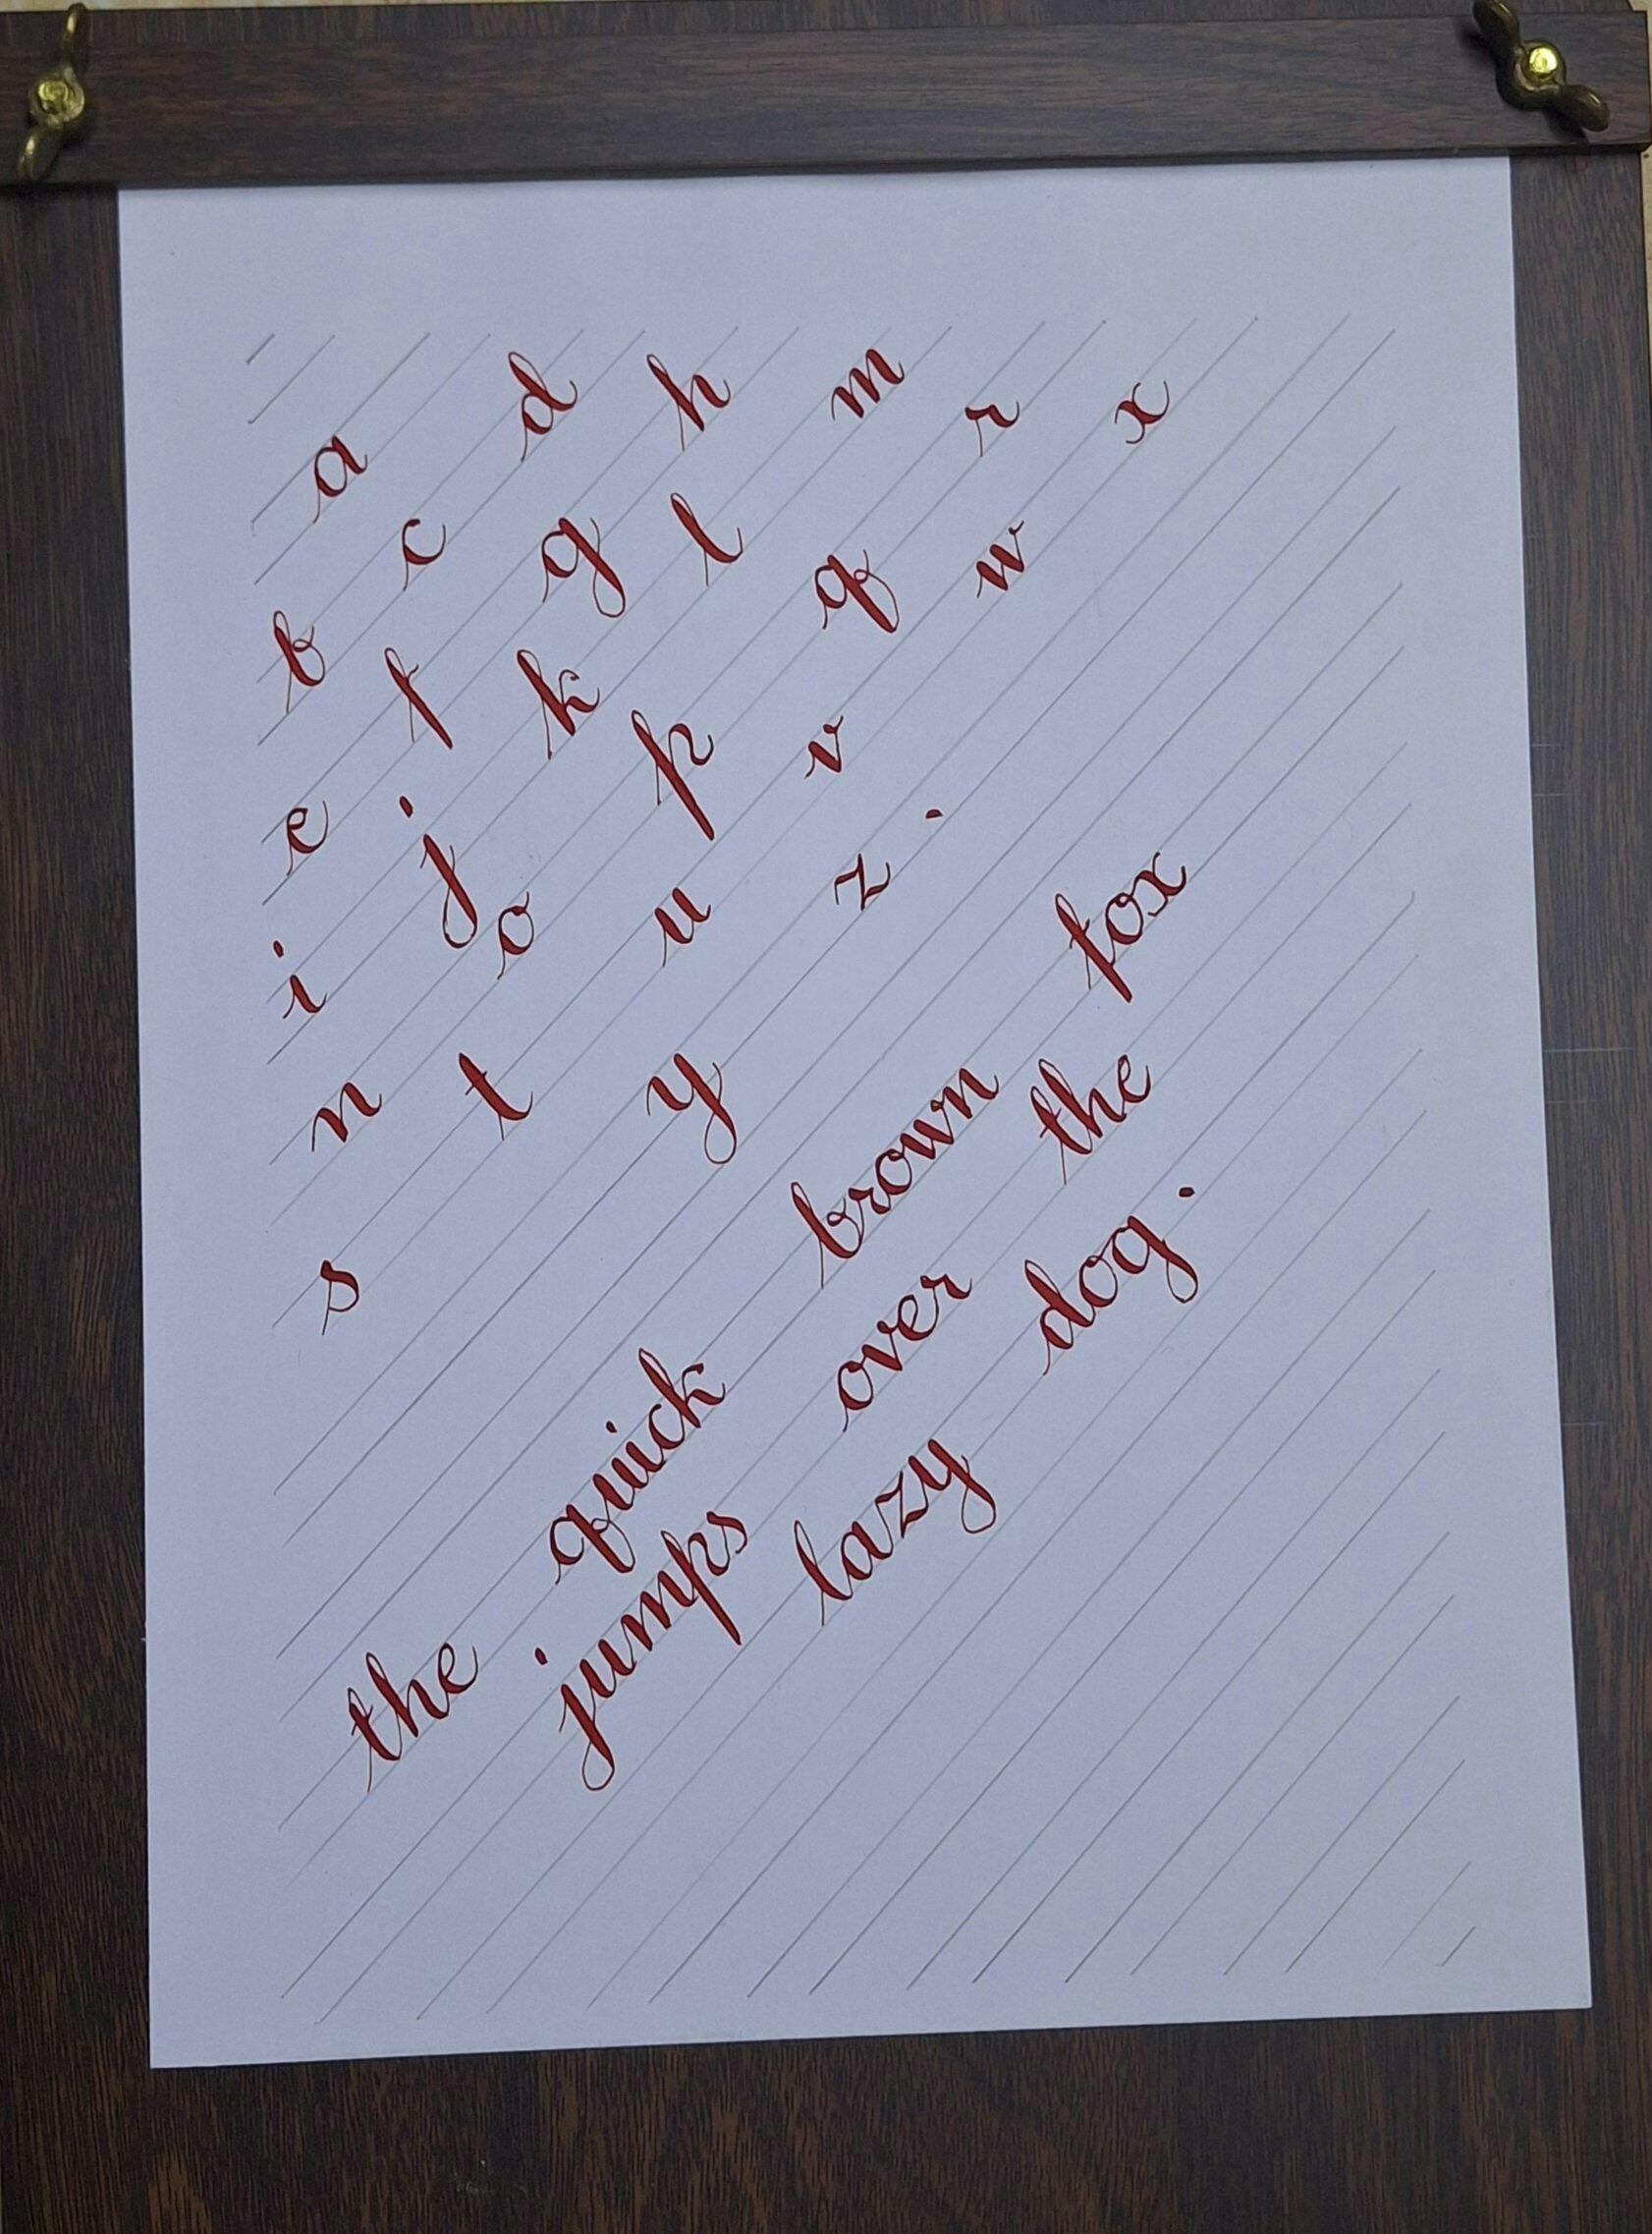 a
b c d
e f g h
i j k l m
n o p q r
s t u v w x
y z .
the quick brown fox
jumps over the
lazy dog.